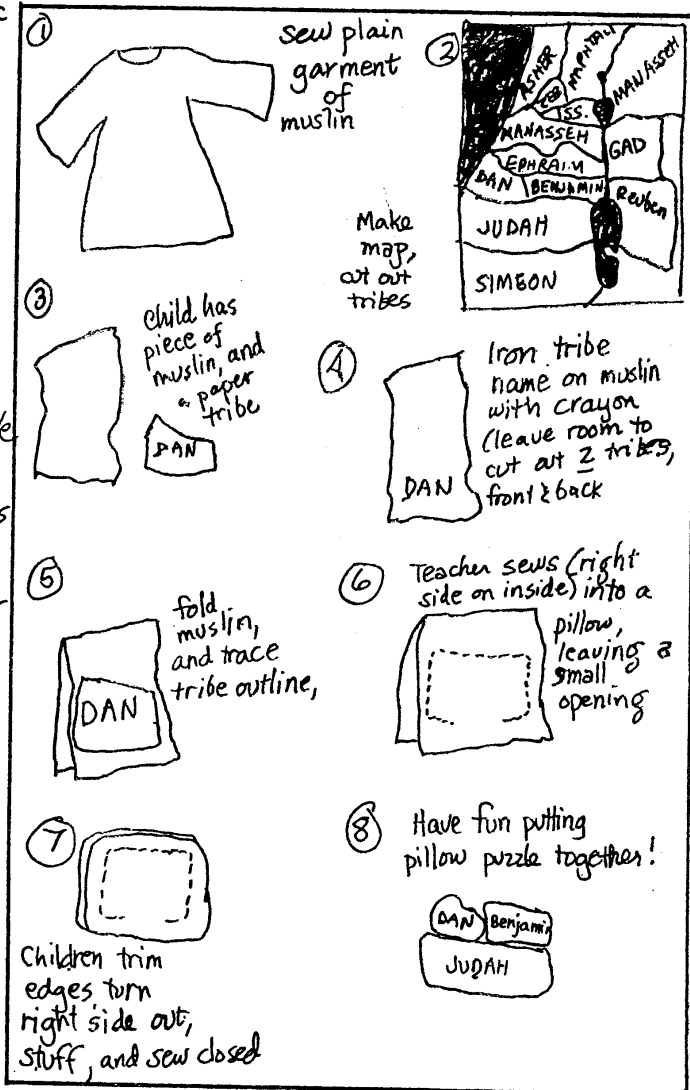 ①
sew plain
garment
of
muslin
②
ASHER
NAPHTALI
MANASSEH
ZEB
ISS.
MANASSEH
GAD
EPHRAIM
DAN
BENJAMIN
Reuben
JUDAH
SIMEON
Make
map,
cut out
tribes
③
child has
piece of
muslin, and
a paper
tribe
DAN
④
Iron tribe
name on muslin
with crayon
(leave room to
cut out 2 tribes,
front & back
DAN
⑤
fold
muslin,
and trace
tribe outline,
DAN
⑥
Teacher sews (right
side on inside) into a
pillow,
leaving a
small
opening
⑦
Children trim
edges, turn
right side out,
stuff, and sew closed
⑧
Have fun putting
pillow puzzle together!
DAN
Benjamin
JUDAH